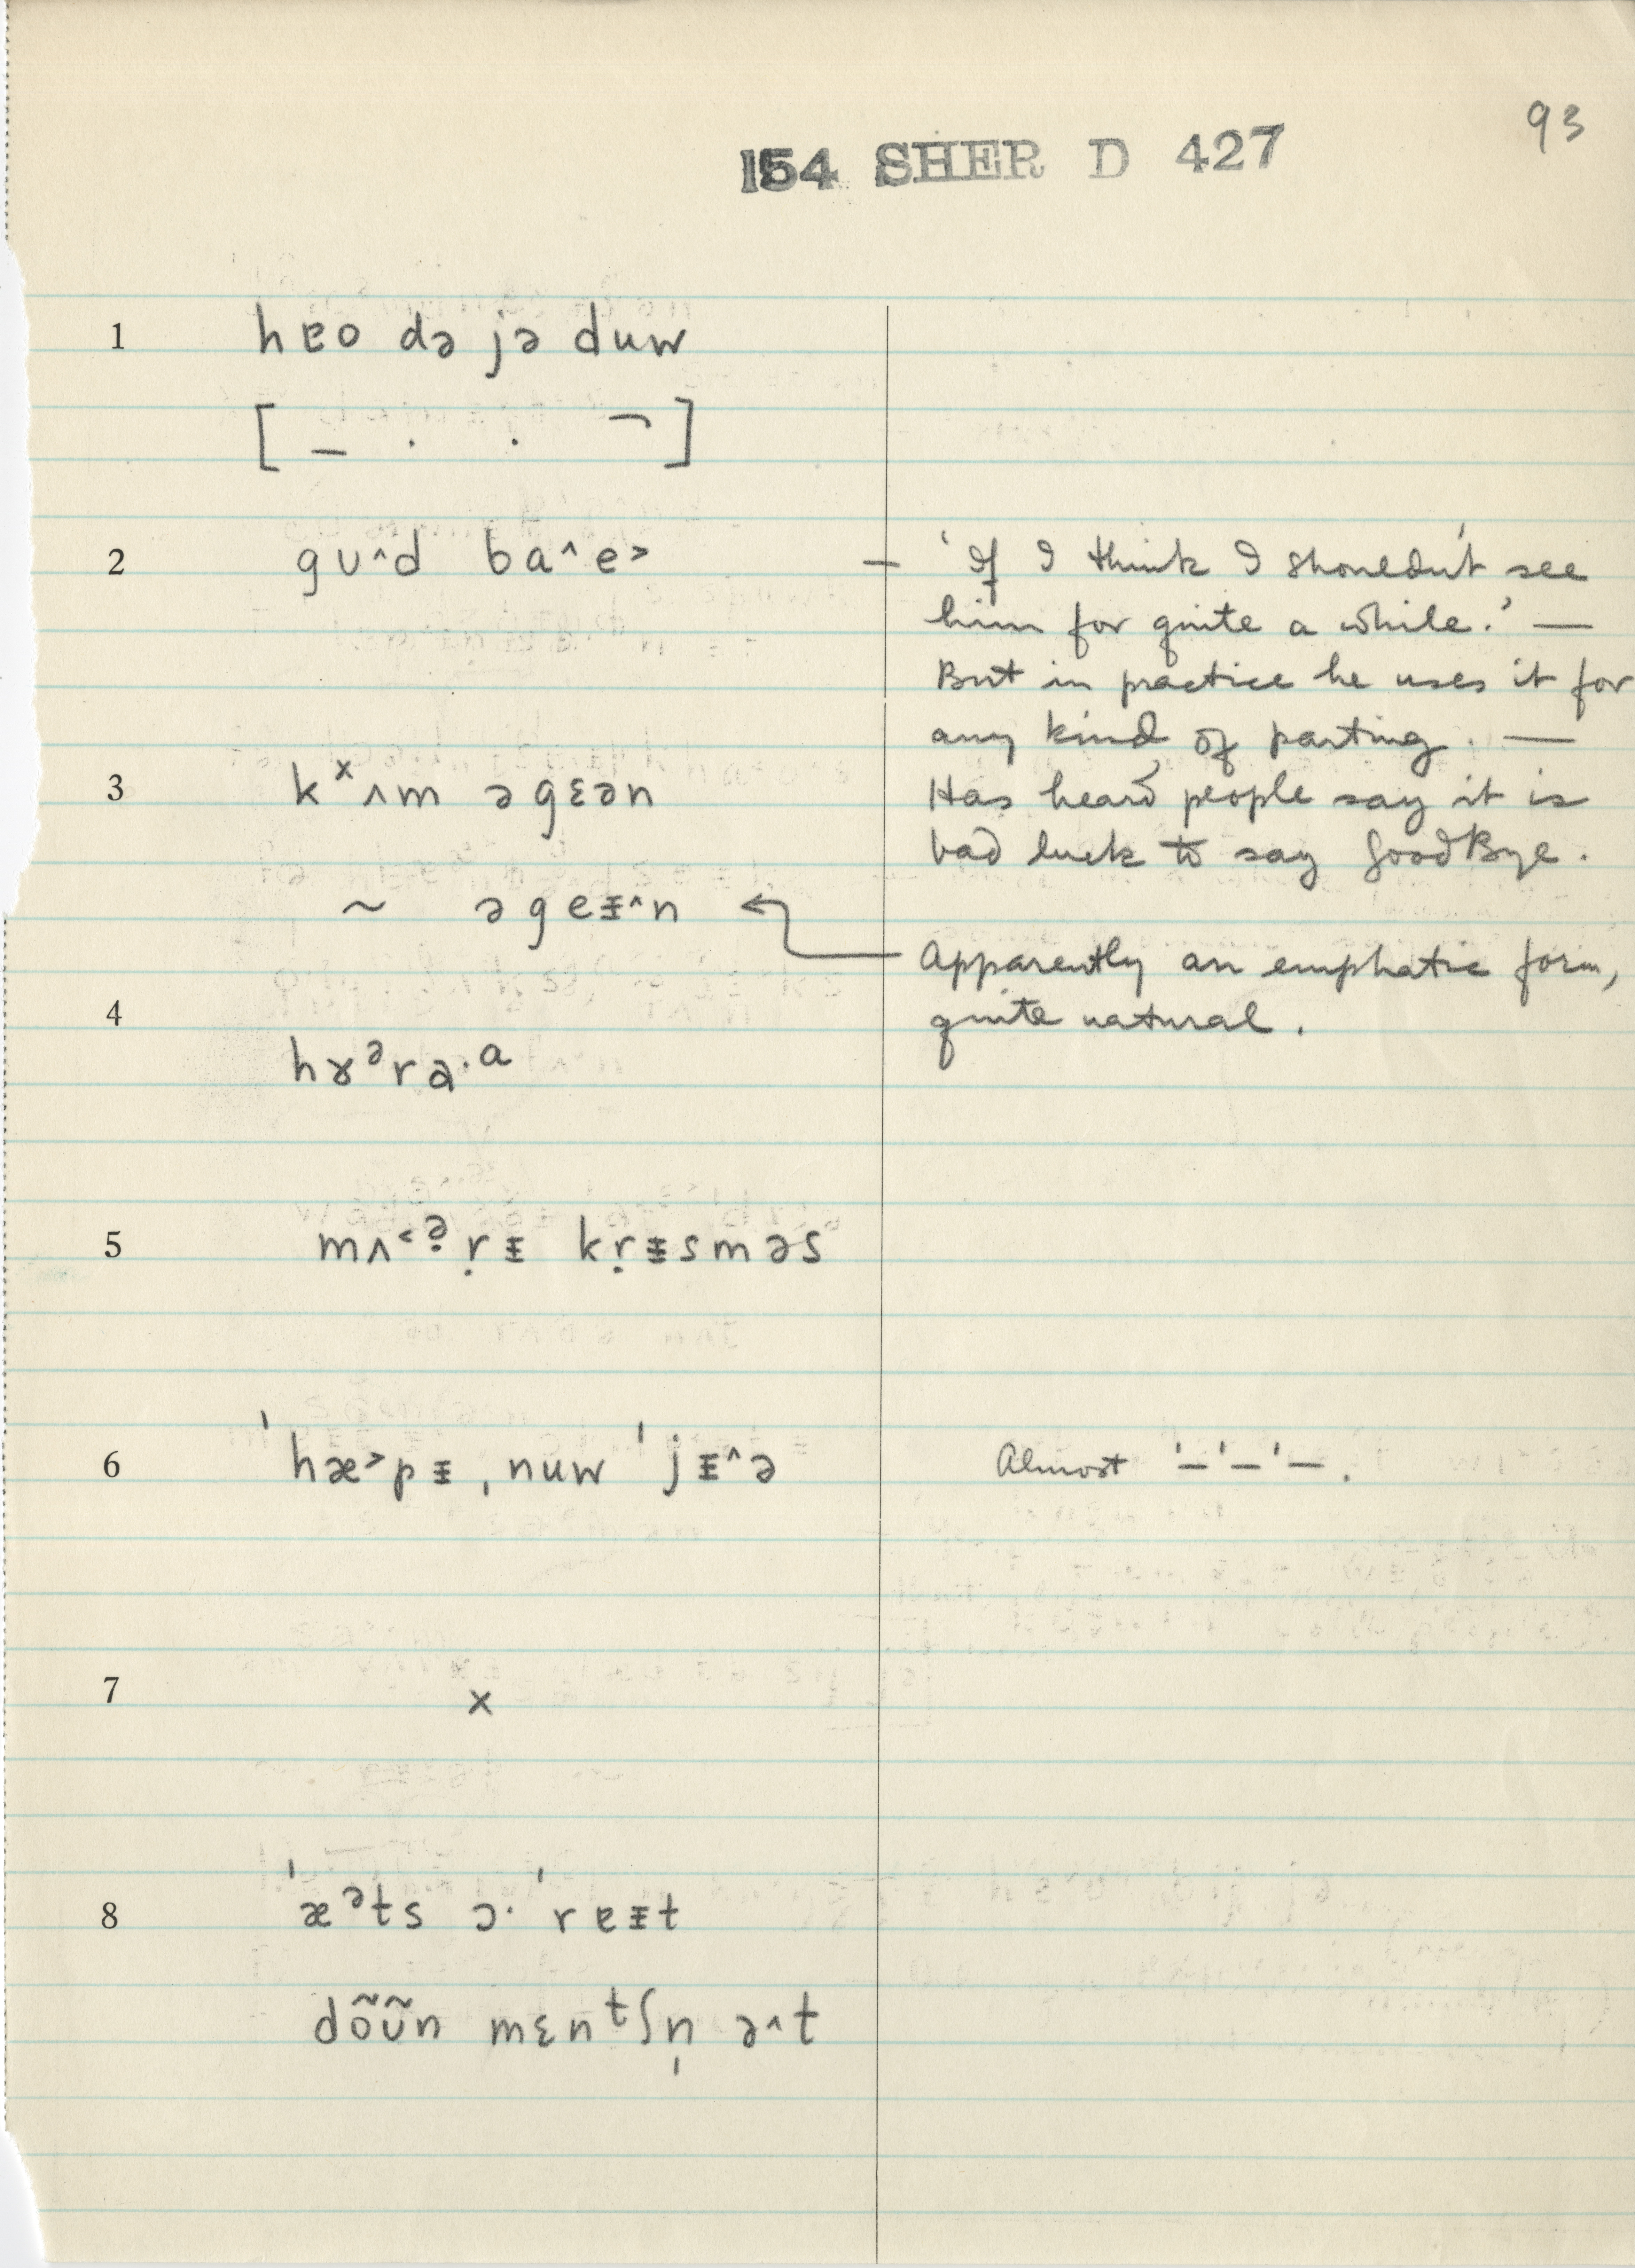 93
154 SHER D 427
1 hɐo də jə duw
[ _ . . ¬ ]
2 gʊ^d ba^e> — 'If I think I shouldn't see
him for quite a while.' —
But in practice he uses it for
any kind of parting. —
3 kˣʌm əgɛən Has heard people say it is
bad luck to say GoodBye.
~ əgeᵻ^n ← Apparently an emphatic form,
4 quite natural.
hɤᵊra·ᵃ
5 mʌ<ᵊ̣ṛᵻ kṛᵻsməs
6 ˈhæ>pᵻ ˌnuw ˈjᵻ^ə Almost '—'—'—.
7 x
8 ˈæᵊts ɔ· ˈrɐᵻt
dõʊ̃n mɛnᵗʃn̩ ə^t